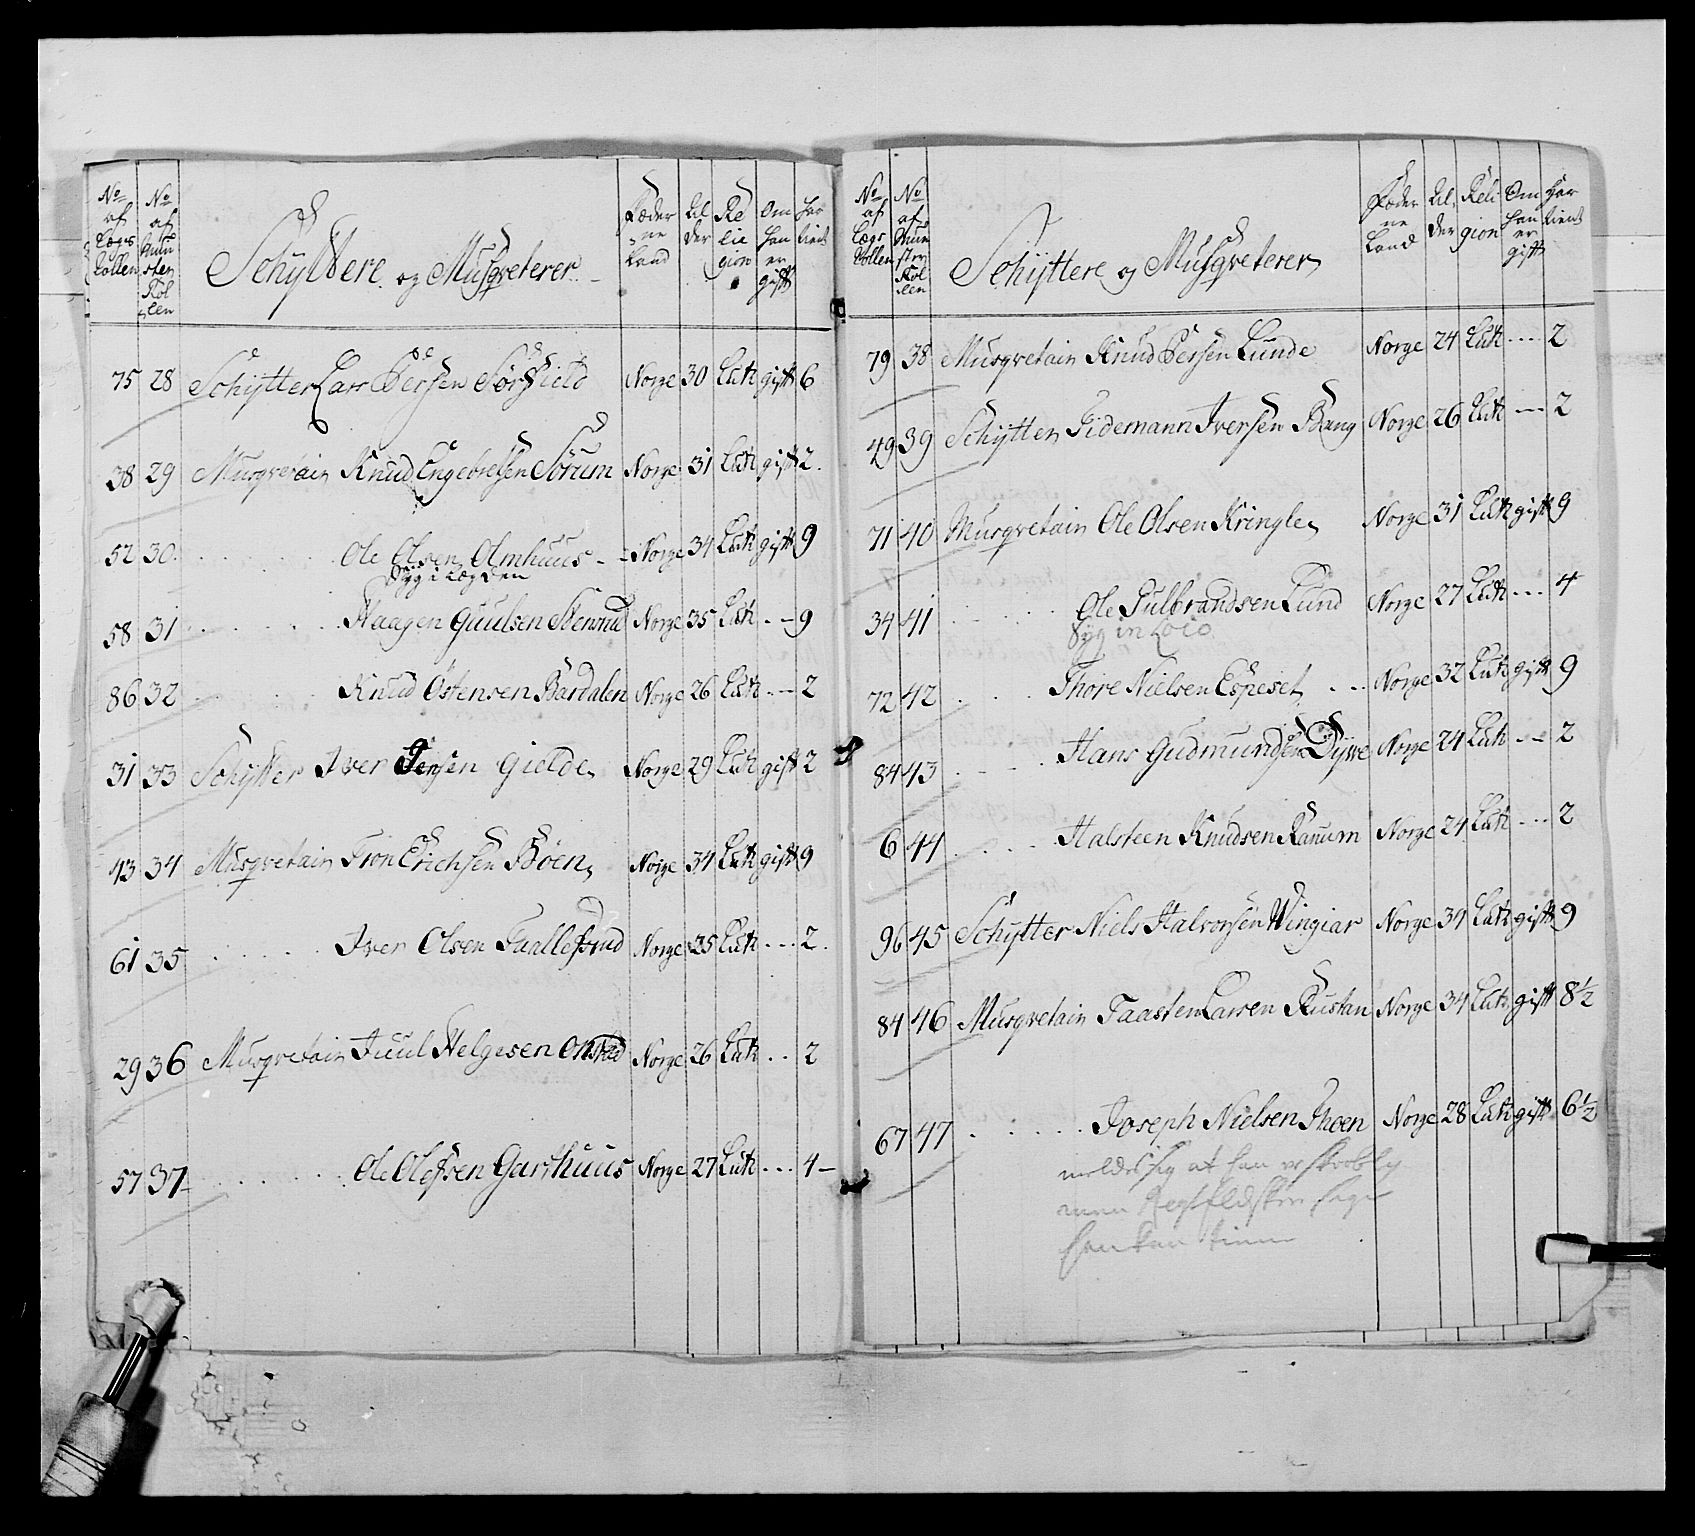 No af Lægs Rollen
No af Mönsterrollen
Schÿttere og Musqveterer
Fæder ne Land
Al der
Re lie gion
Om han er gift
Har tient
75 28 Schÿtter Lars Persen Sörfield Norge 30 Luth gift 6
38 29 Musqvetair Knud Engebretsen Sörum Norge 31 Luth gift 2.
52 30. Ole Olsen Olmhuus - Norge 34 Luth gift 9
Sÿg i Lægden
58 31 Haagen Guulsen Norge 35 Luth - - 9
86 32 Knud Östensen Bardalen Norge 26 Luth - - 2
31 33 Schÿtter Iver Jensen Gielde Norge 29 Luth gift 2
43 34 Musqvetair Tron Erichsen Böen Norge 34 Luth gift 9
61 35 Iver Olsen Norge 35 Luth - - - 2.
29 36 Musqvetair Juul Helgesen Norge 26 Luth - - 2
57 37 Ole Olefsen Garthuus Norge 27 Luth - - - 4 -
No af Lægs Rollen
No af Munster Rollen
Schÿttere og Musqveterer
Fæder ne Land
Al der
Reli gion
Om han er gift
Har tient
79 38 Musqvetair Knud Persen Lunde Norge 24 Luth ---- 2
49 39 Schÿtter Tidemann Iversen Bang Norge 26 Luth --- 2
71 40 Musqvetair Ole Olsen Kringle Norge 31 Luth gift 9
34 41 Ole Gulbrandsen Lund Norge 27 Luth - - - 4
Sÿg in Loco
72 42 Thore Nielsen Espeset - - Norge 32 Luth gift 9
84 43 Hans Gudmundsen Norge 24 Luth - - 2
6 44 Halsteen Knudsen Ranum Norge 24 Luth - - - 2
96 45 Schÿtter Niels Halvorsen Wingiar Norge 34 Luth gift 9
84 46 Musqvetair Taasten Larsen Rustan Norge 34 Luth gift 8½
67 47 Joseph Nielsen Thoen Norge 28 Luth gift 6½
melder sig at han er
men
han kan tiene